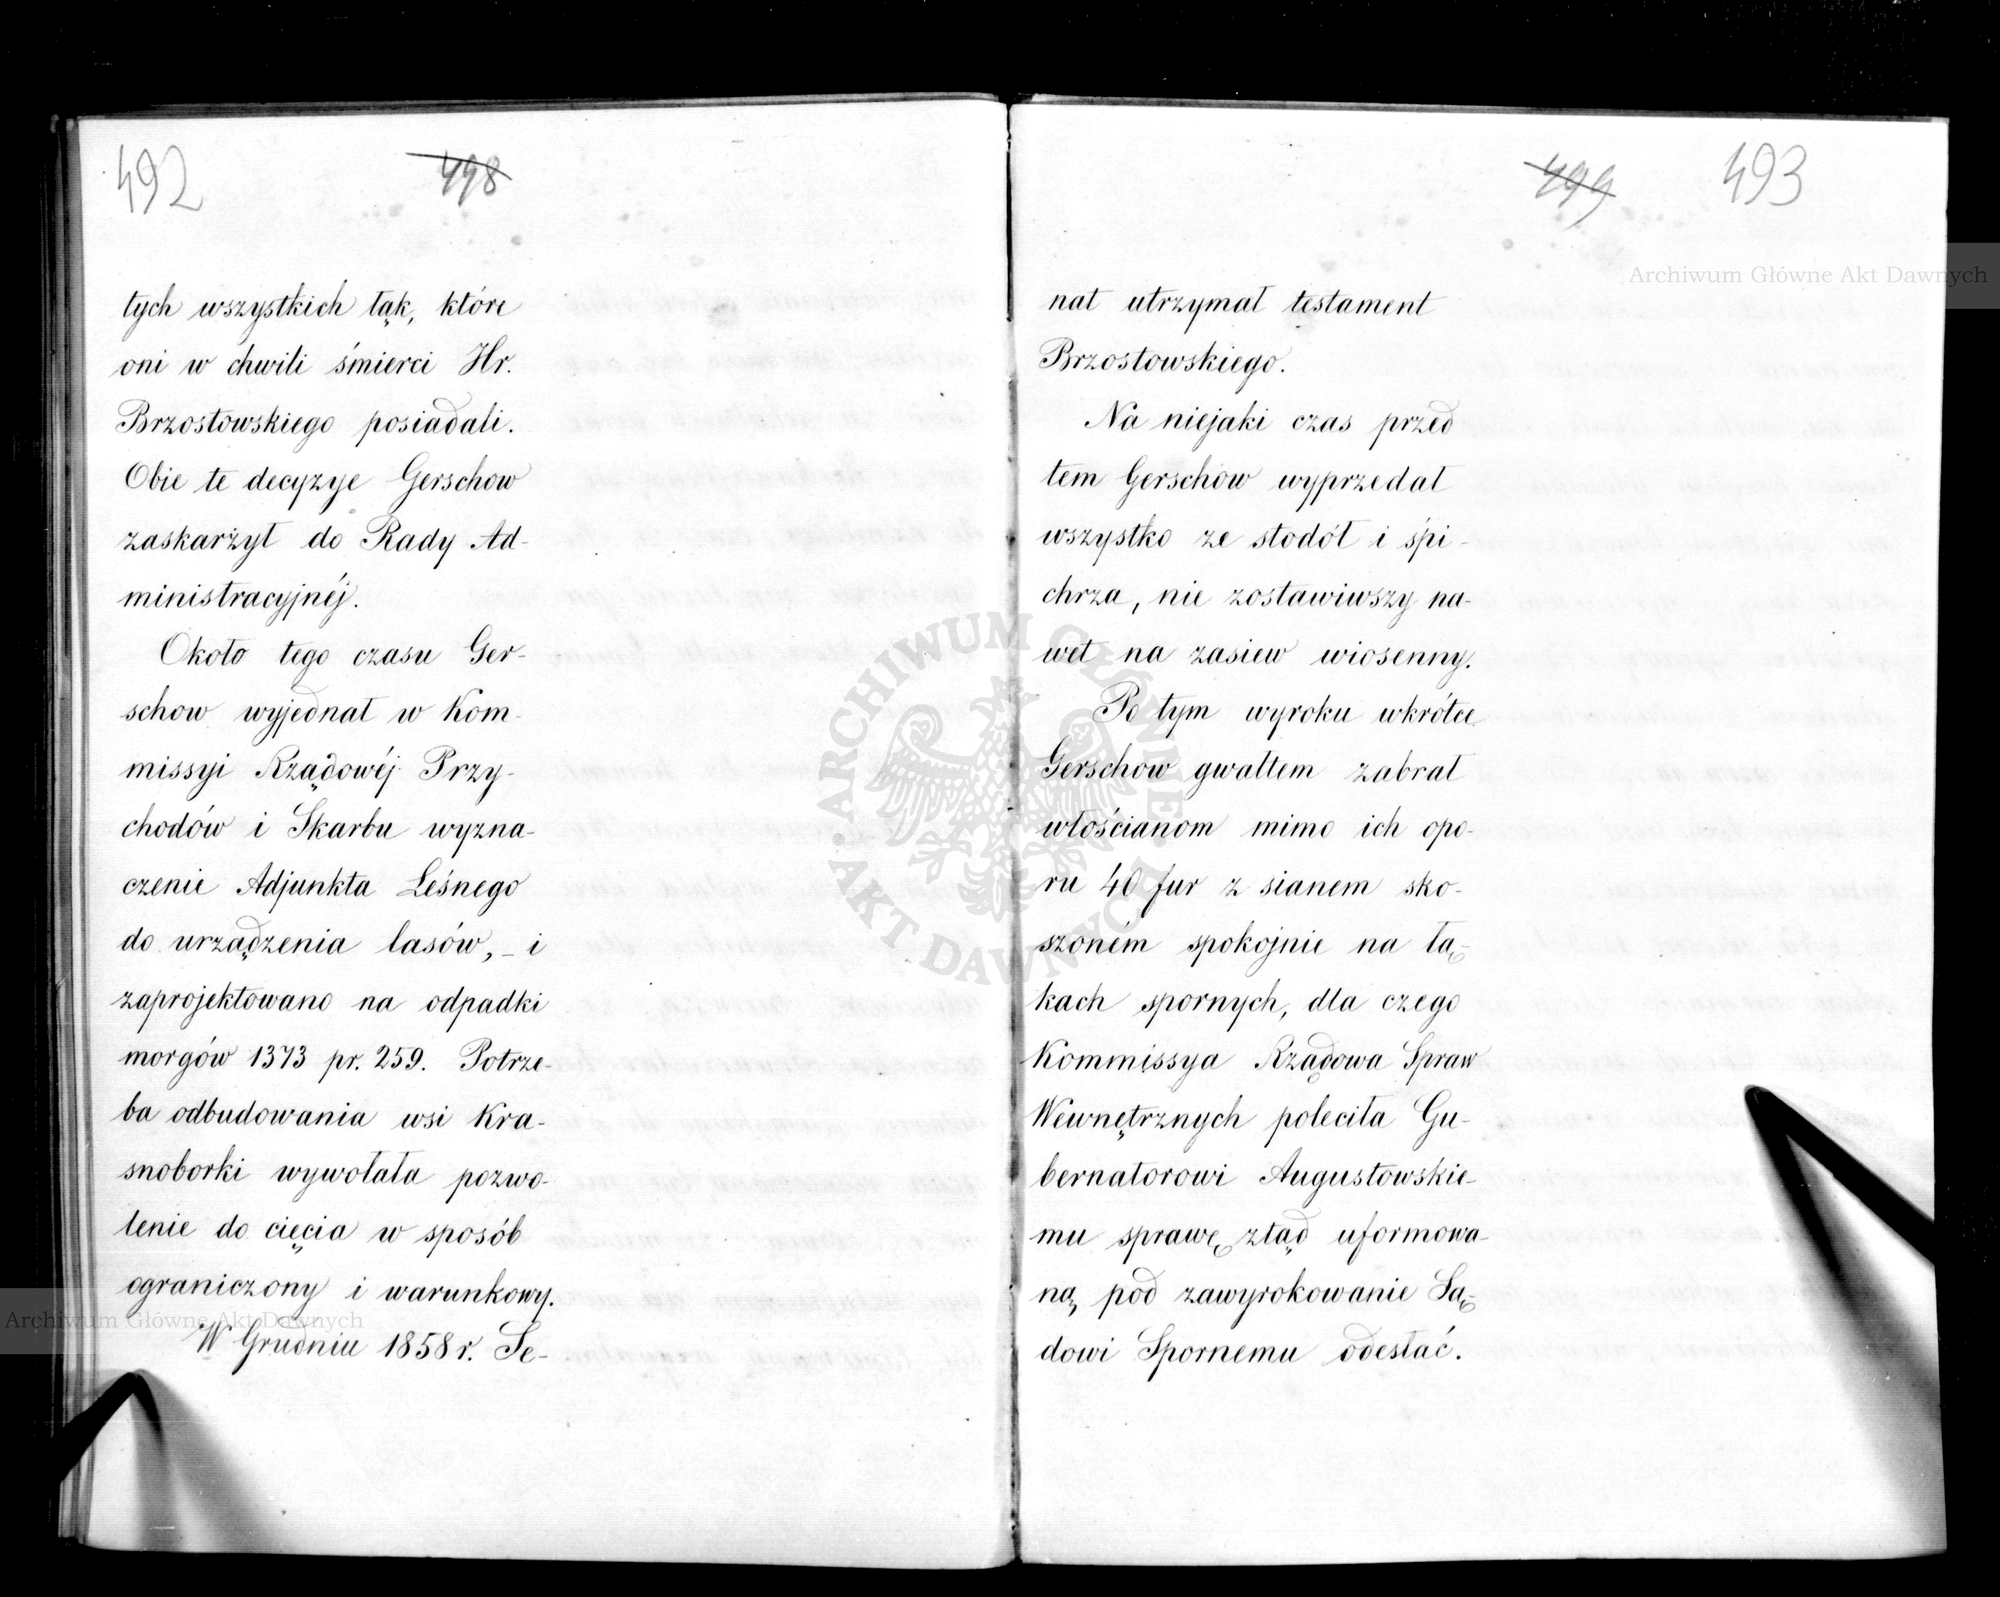 492
498
tych wszystkich łąk, które
oni w chwili śmierci Hr.
Brzostowskiego posiadali.
Obie te decyzye Gerschow
zaskarżył do Rady Ad-
ministracyjnéj.
Około tego czasu Ger-
schow wyjednał w Kom-
missyi Rządowéj Przy-
chodów i Skarbu wyzna-
czenie Adjunkta Leśnego
do urządzenia lasów, – i
zaprojektowano na odpadki
morgów 1373 pr. 259. Potrze-
ba odbudowania wsi Kra-
snoborki wywołała pozwo-
lenie do cięcia w sposób
ograniczony i warunkowy.
W Grudniu 1858 r. Se-
499
493
nat utrzymał testament
Brzostowskiego.
Na niejaki czas przed
tem Gerschow wyprzedał
wszystko ze stodół i śpi-
chrza, nie zostawiwszy na-
wet na zasiew wiosenny.
Po tym wyroku wkrótce
Gerschow gwałtem zabrał
włościanom mimo ich opo-
ru 40 fur z sianem sko-
szoném spokojnie na łą-
kach spornych, dla czego
Kommissya Rządowa Spraw
Wewnętrznych poleciła Gu-
bernatorowi Augustowskie-
mu sprawę ztąd uformowa-
ną, pod zawyrokowanie Są-
dowi Spornemu odesłać.
Archiwum Główne Akt Dawnych
Archiwum Główne Akt Dawnych
ARCHIWUM GŁÓWNE AKT DAWNYCH